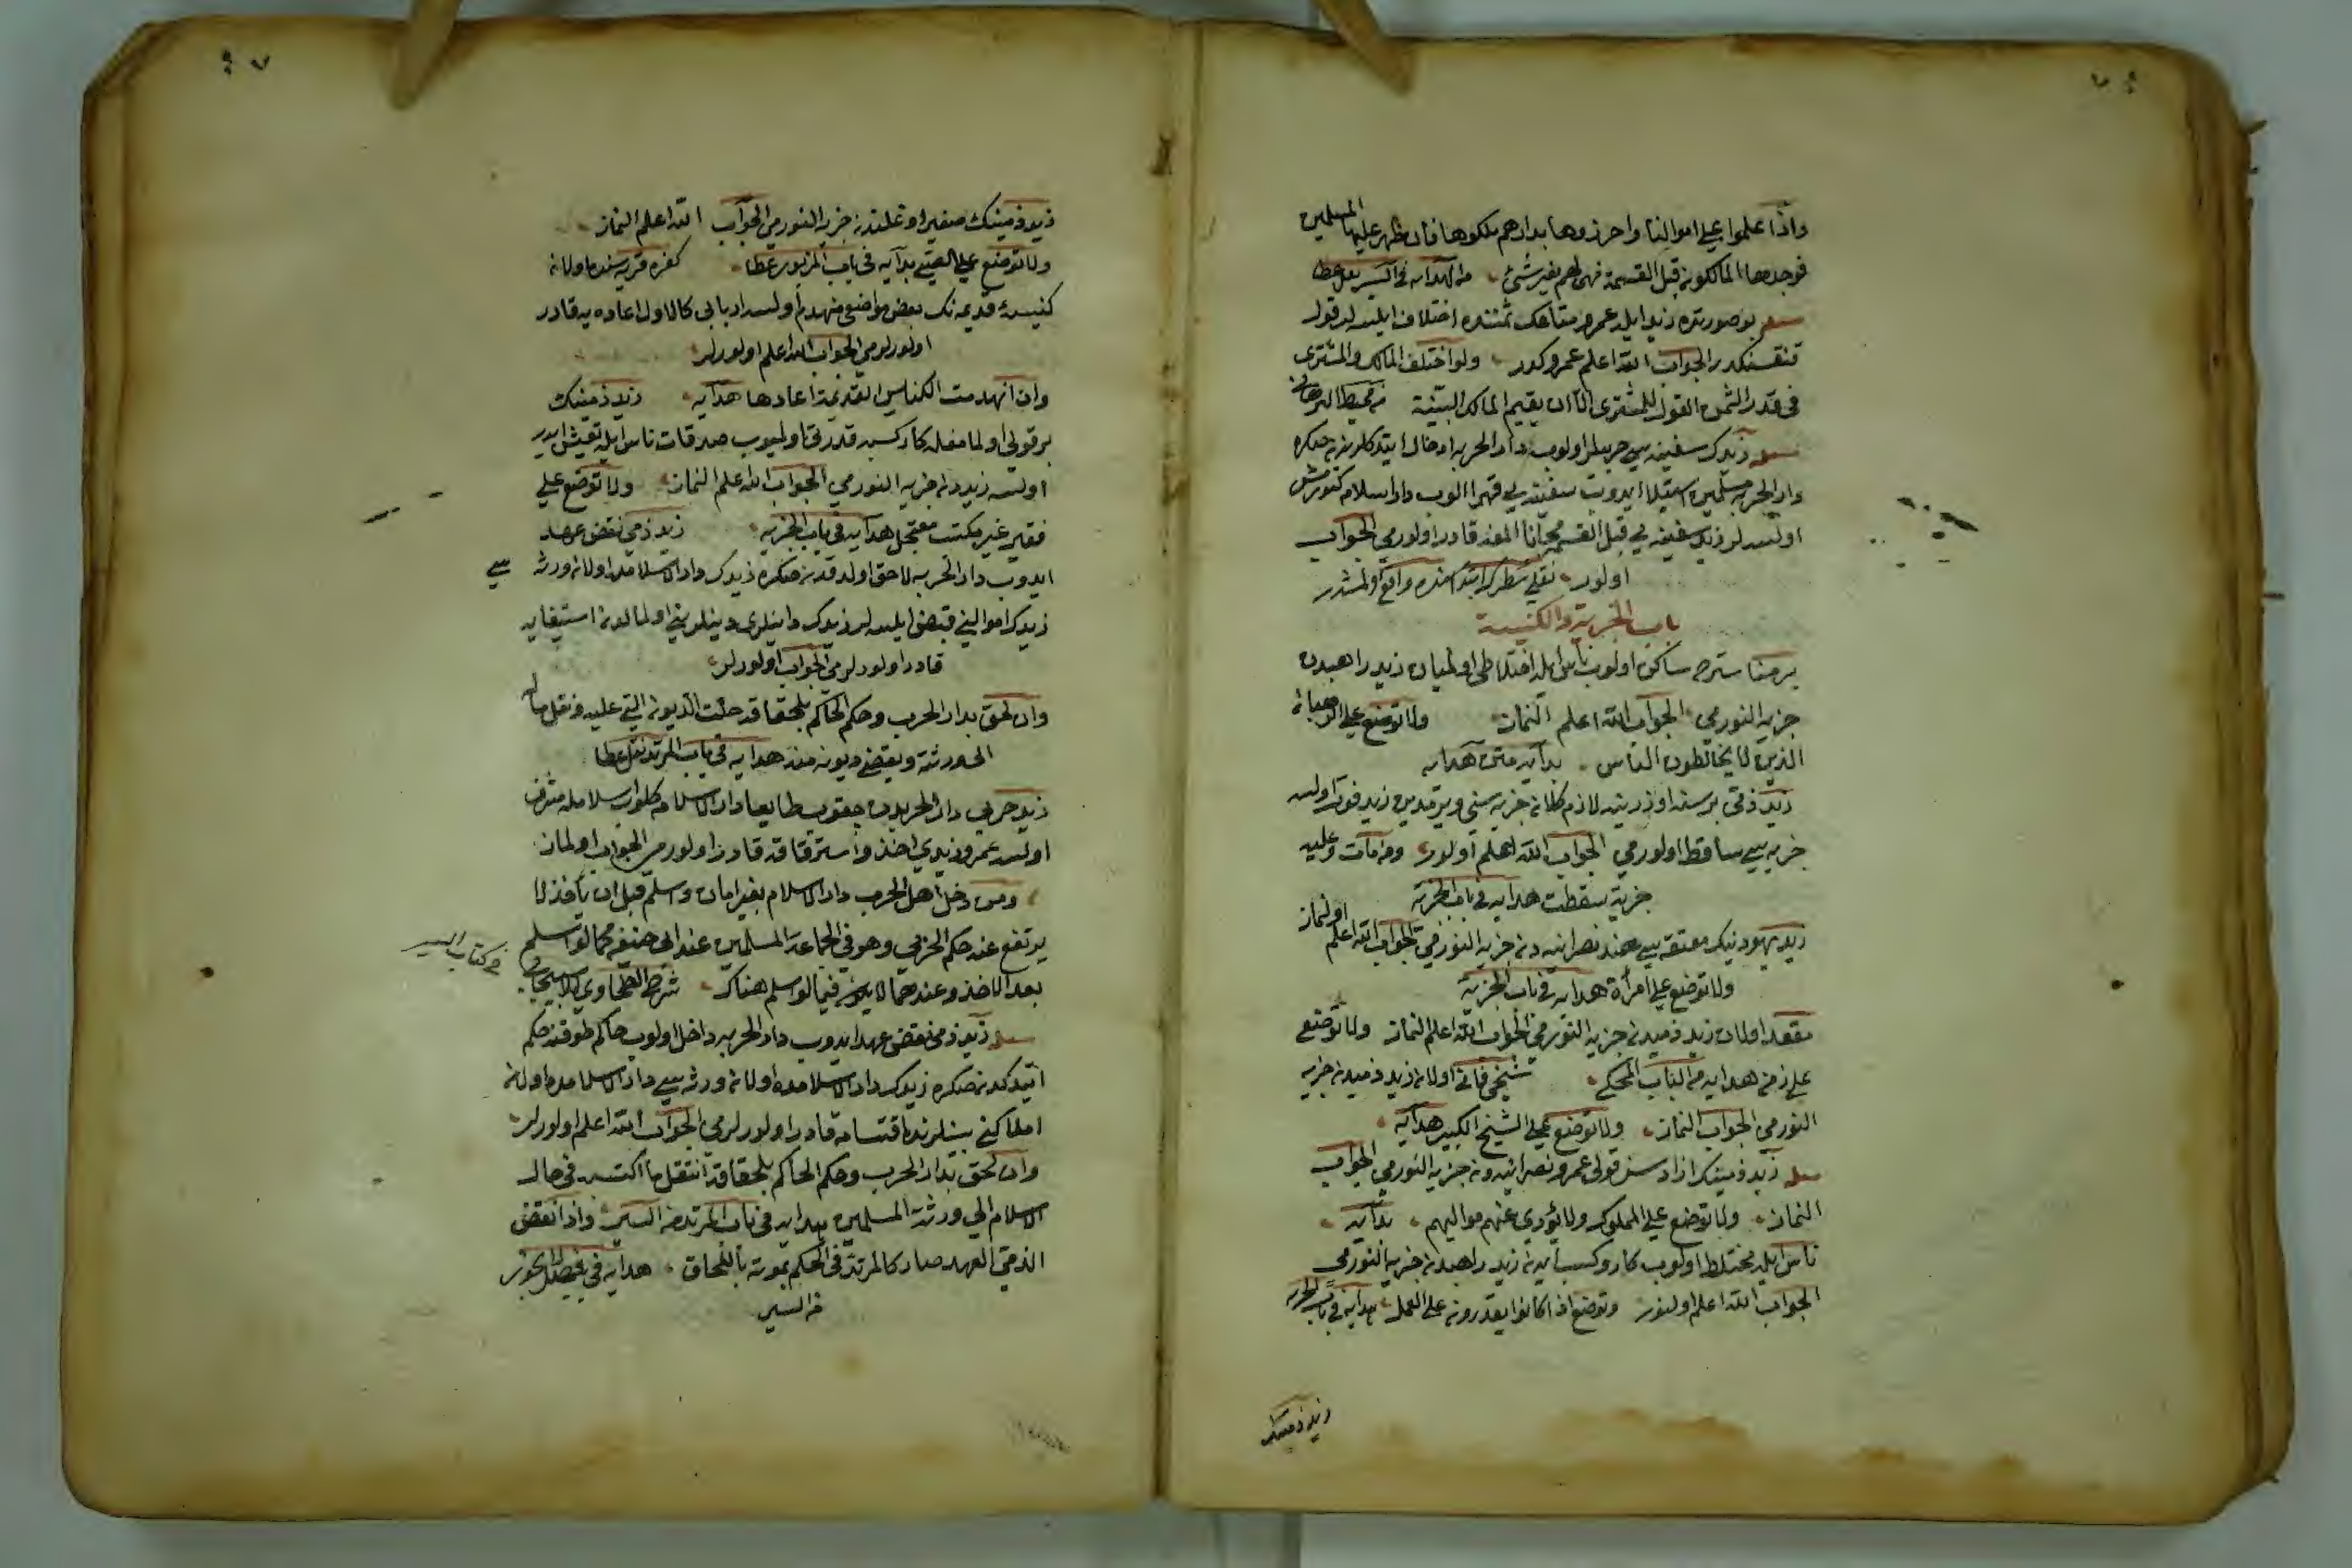 واذا غلبوا علي اموالنا واحرزوها بدارهم ملكوها فان ظهر عليها المسلمين
فوجدها المالكون قبل القسمة فهي لهم بغير شئ من الهداية في السير نقل عطا
بو صورتده زيد ايله عمرو متاعك ثمننده اختلاف ايلسه لر قول
قنقسنكدر الجواب الله اعلم عمروكدر ولو اختلف المالك والمشتري
في قدر الثمن القول للمشتري الا ان يقيم المالك البينة من محيط البرهاني
زيدك سفينه سي حربيلر اولوب دار الحربه ادخال ايتدكلرندنصكره
دار الحربه مسلمين استيلا ايدوب سفينه يي قهرا الوب دار اسلامه كتورمش
اولسه لر زيد سفينه يي قبل القسمه مجانا المغه قادر اولورمي الجواب
اولور نقلي سطرك ابتداسنده واقع اولمشدر
باب الجزية والكنيسة
بر مناسترده ساكن اولوب ناس ايله اختلاطي اولميان زيد راهبدن
جزيه النورمي الجواب الله اعلم النماز ولا توضع علي الرهبان
الذين لا يخالطون الناس بدايه متن هدايه
زيد ذمي بر سنه اوزرينه لازم كلان جزيه سني ويرمدين زيد فوت اولسه
جزيه سي ساقط اولورمي الجواب الله اعلم اولور ومن مات وعليه
جزية سقطت هدايه في باب الجزية
زيد يهودينك معتقه سي هند نصرانيه دن جزيه النورمي الجواب الله اعلم اولنماز
ولا توضع علي امرأة هدايه في باب الجزية
مقعد اولان زيد ذميدن جزيه النورمي الجواب الله اعلم النماز ولا توضع
علي زمن هدايه من الباب المحكي شيخ فاني اولان زيد ذميدن جزيه
النورمي الجواب النماز ولا توضع علي الشيخ الكبير هدايه
زيد ذمينك ازادسز قولي عمرو نصرانيدن جزيه النورمي الجواب
النماز ولا توضع علي المملوك ولا يؤدي عنهم مواليهم بدايه
ناس ايله مختلط اولوب كار وكسب ايدن زيد راهبدن جزيه النورمي
الجواب الله اعلم اولنور وتوضع اذا كانوا يقدرون علي العمل هدايه في باب الجزية
زيد ذمينك
زيد ذمينك صغير اوغلندن جزيه النورمي الجواب الله اعلم النماز
ولا توضع علي الصبي بدايه في باب المزبور عطا كفره قريه سنده اولان
كنيسۀ قديمه نك بعض مواضعي منهدم اولسه اربابي كالاول اعاده يه قادر
اولورلرمي الجواب الله اعلم اولورلر
وان انهدمت الكنايس القديمة اعادها هدايه زيد ذمينك
بر قولي اولمامغله كار كسبه قدرتي اولميوب صدقات ناس ايله تعيش ايدر
اولسه زيددن جزيه النورمي الجواب الله اعلم النماز ولا توضع علي
فقير غير مكتسب معتمل هدايه في باب الجزيه زيد ذمي نقض عهد
ايدوب دار الحربه لاحق اولدقدنصكره زيدك دار الاسلامده اولان ورثه سي
زيدك اموالني قبض ايلسه لر زيدك داينلري دينلريني اولمالدن استيفايه
قادر اولورلرمي الجواب اولورلر
وان لحق بدار الحرب وحكم الحاكم بلحقاقه حلت الديون التي عليه ونقل ماله
الي ورثته ويقضي ديونه منه هدايه في باب المرتد نقل عطا
زيد حربي دار الحربدن چقوب طايعا دار الاسلامه كلوب اسلامله مشرف
اولسه عمرو زيدي اخذ واسترقاقه قادر اولورمي الجواب اولماز
ومن دخل اهل الحرب دار الاسلام بغير امان واسلم قبل ان يأخذ لا
يرتفع عنه حكم الحربي وهو في الجماعة المسلمين عند ابي حنيفه كما لو اسلم
بعد الاخذ وعندهما لا يكون فيئا لو اسلم هناك شرح الطحاوي للاسبيجابي
من كتاب السير
زيد ذمي نقض عهد ايدوب دار الحربه داخل اولوب حاكم لحوقنه حكم
ايتدكدنصكره زيدك دار الاسلامده اولان ورثه سي دار الاسلامده اولان
املاكني بينلرنده اقتسامه قادر اولورلرمي الجواب الله اعلم اولورلر
وان لحق بدار الحرب وحكم الحاكم بلحقاقه انتقل ما اكتسبه في حال
الاسلام الي ورثته المسلمين هدايه في باب المرتد من السير واذا نقض
الذمي العهد صار كالمرتد في الحكم بموته باللحاق هدايه في
من السير